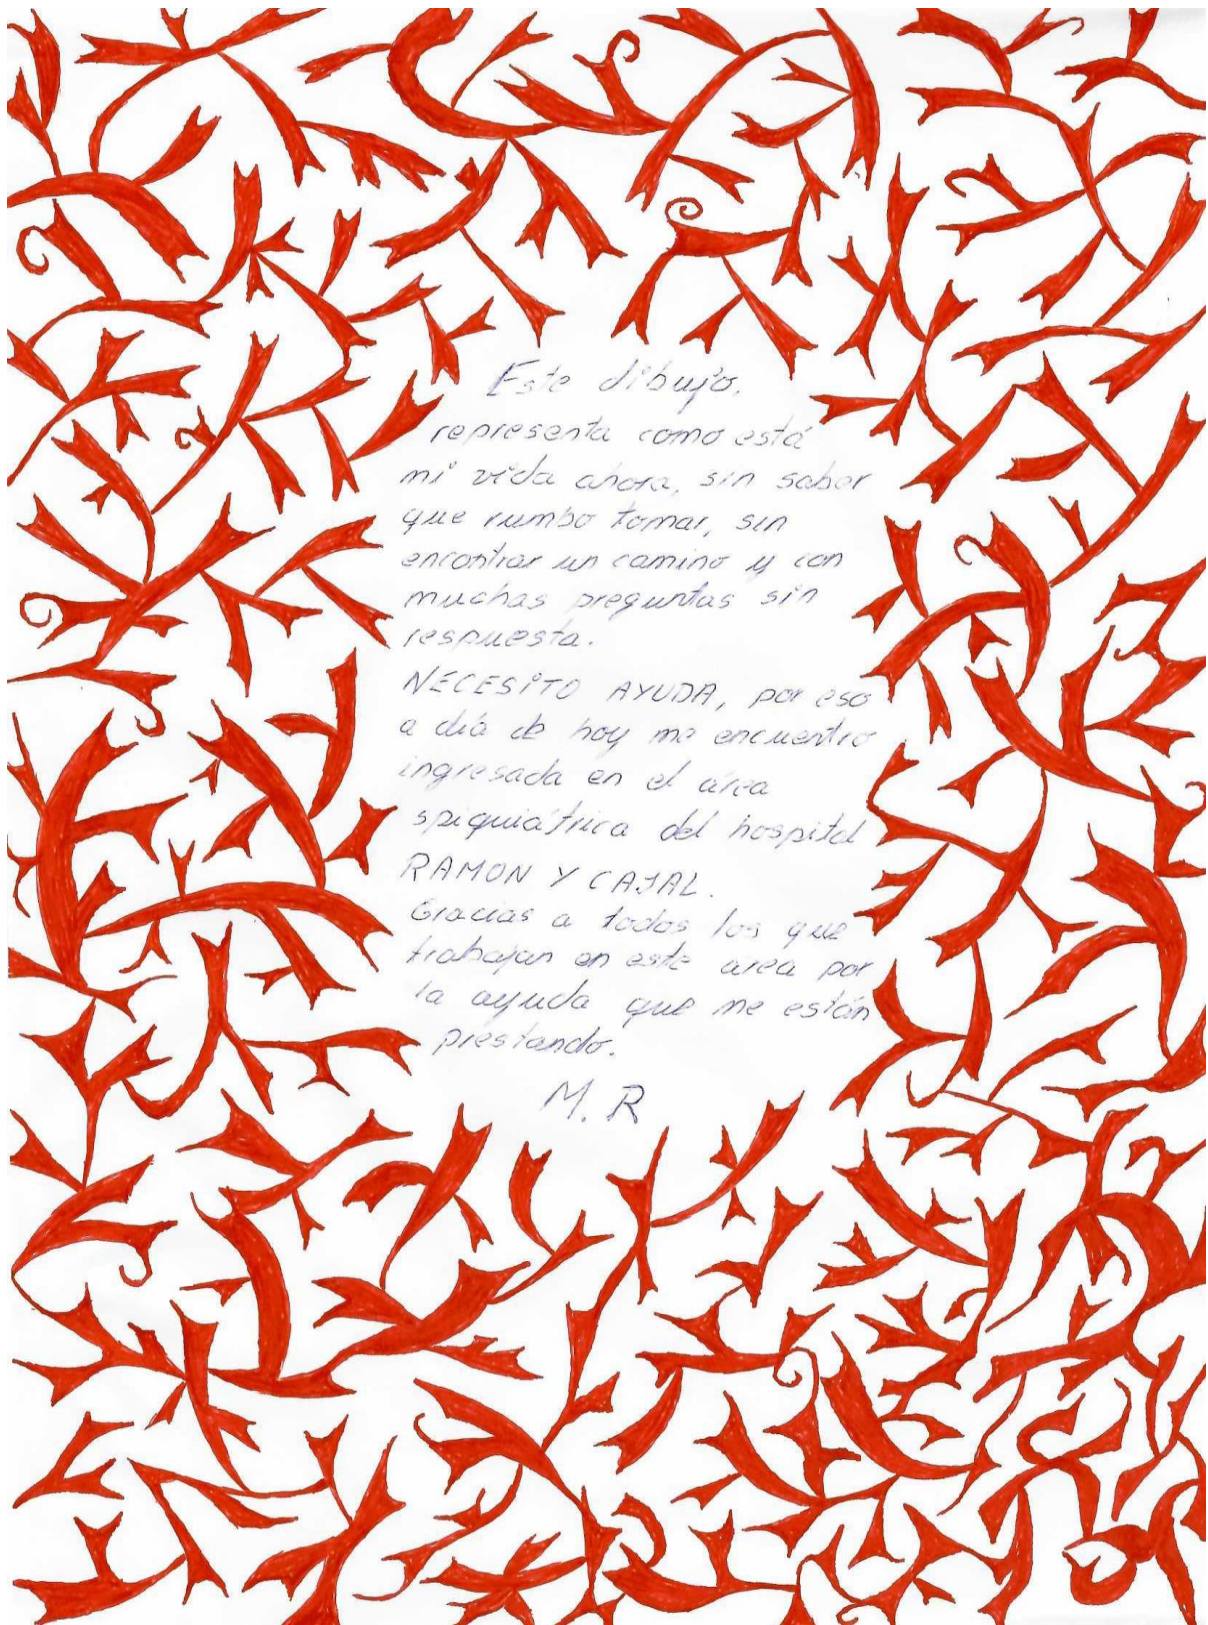 Este dibujo.
representa como está
mi vida ahora, sin saber
que rumbo tomar, sin
encontrar un camino y con
muchas preguntas sin
respuesta.
NECESITO AYUDA, por eso
a día de hoy me encuentro
ingresada en el área
spiquiátrica del hospital
RAMON Y CAJAL.
Gracias a todos los que
trabajan en este area por
la ayuda que me están
prestando.
M. R